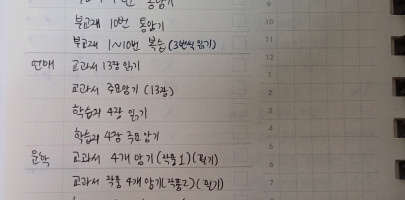 부교재 10번 통암기
부교재 1~10번 복습 (3번씩 읽기)
교과서 13장 읽기
교과서 주요암기 (13장)
학습지 4장 읽기
학습지 4장 주요 암기
문학 교과서 4개 암기 (작품1) (필기)
교과서 작품 4개 암기 (작품2) (필기)
11
12
1
2
3
4
5
6
7